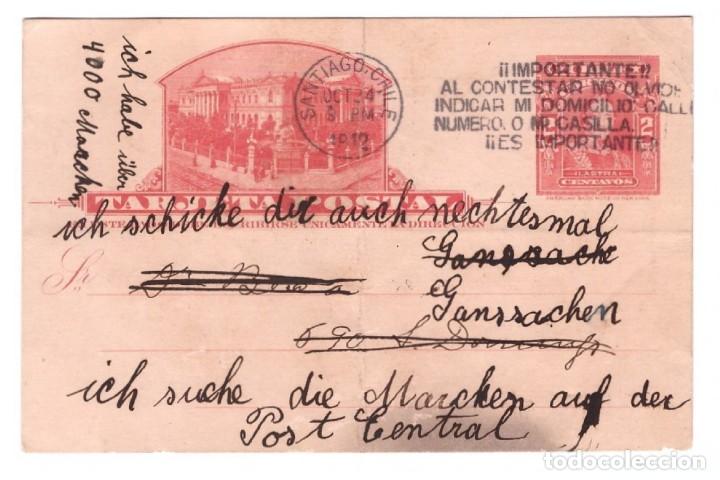 ich habe über
4000 Marcken
SANTIAGO. CHILE
OCT 24
6 PM
1912
¡¡IMPORTANTE!!
AL CONTESTAR NO OLVIDE
INDICAR MI DOMICILIO CALLE
NUMERO. O MI CASILLA.
¡¡ES IMPORTANTE!!
2
LASTRA
CENTAVOS
TARJETA POSTAL
ich schicke dir auch nechtesmal
UNICAMENTE LA DIRECCION
Ganssache
Sr.
Ganssachen
590 S. Domingo
ich suche die Marcken auf der
Post Central